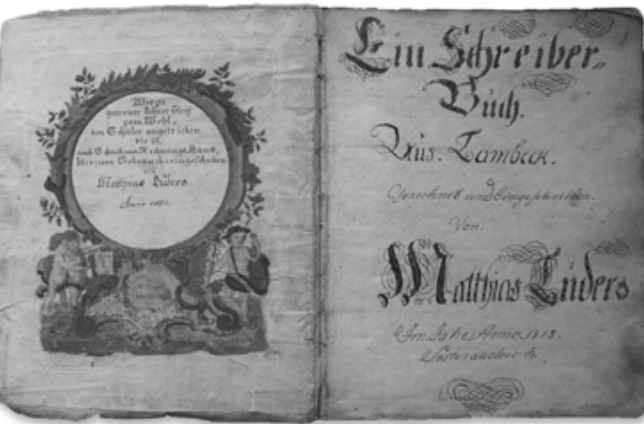 getreuer Lehrer Fleiß
zum Wohl,
den Schüler angetrieben
die
und Schreib und Rechnungs Kunst,
hier zum Gebrauche eingeschrieben
Matthias Lüders
Anno
Ein Schreiber,,
Buch.
Aus. Tambeck.
Gerechnet und Eingeschrieben.
Von.
Matthias Lüders
Im Jahr, Anno, 1818.